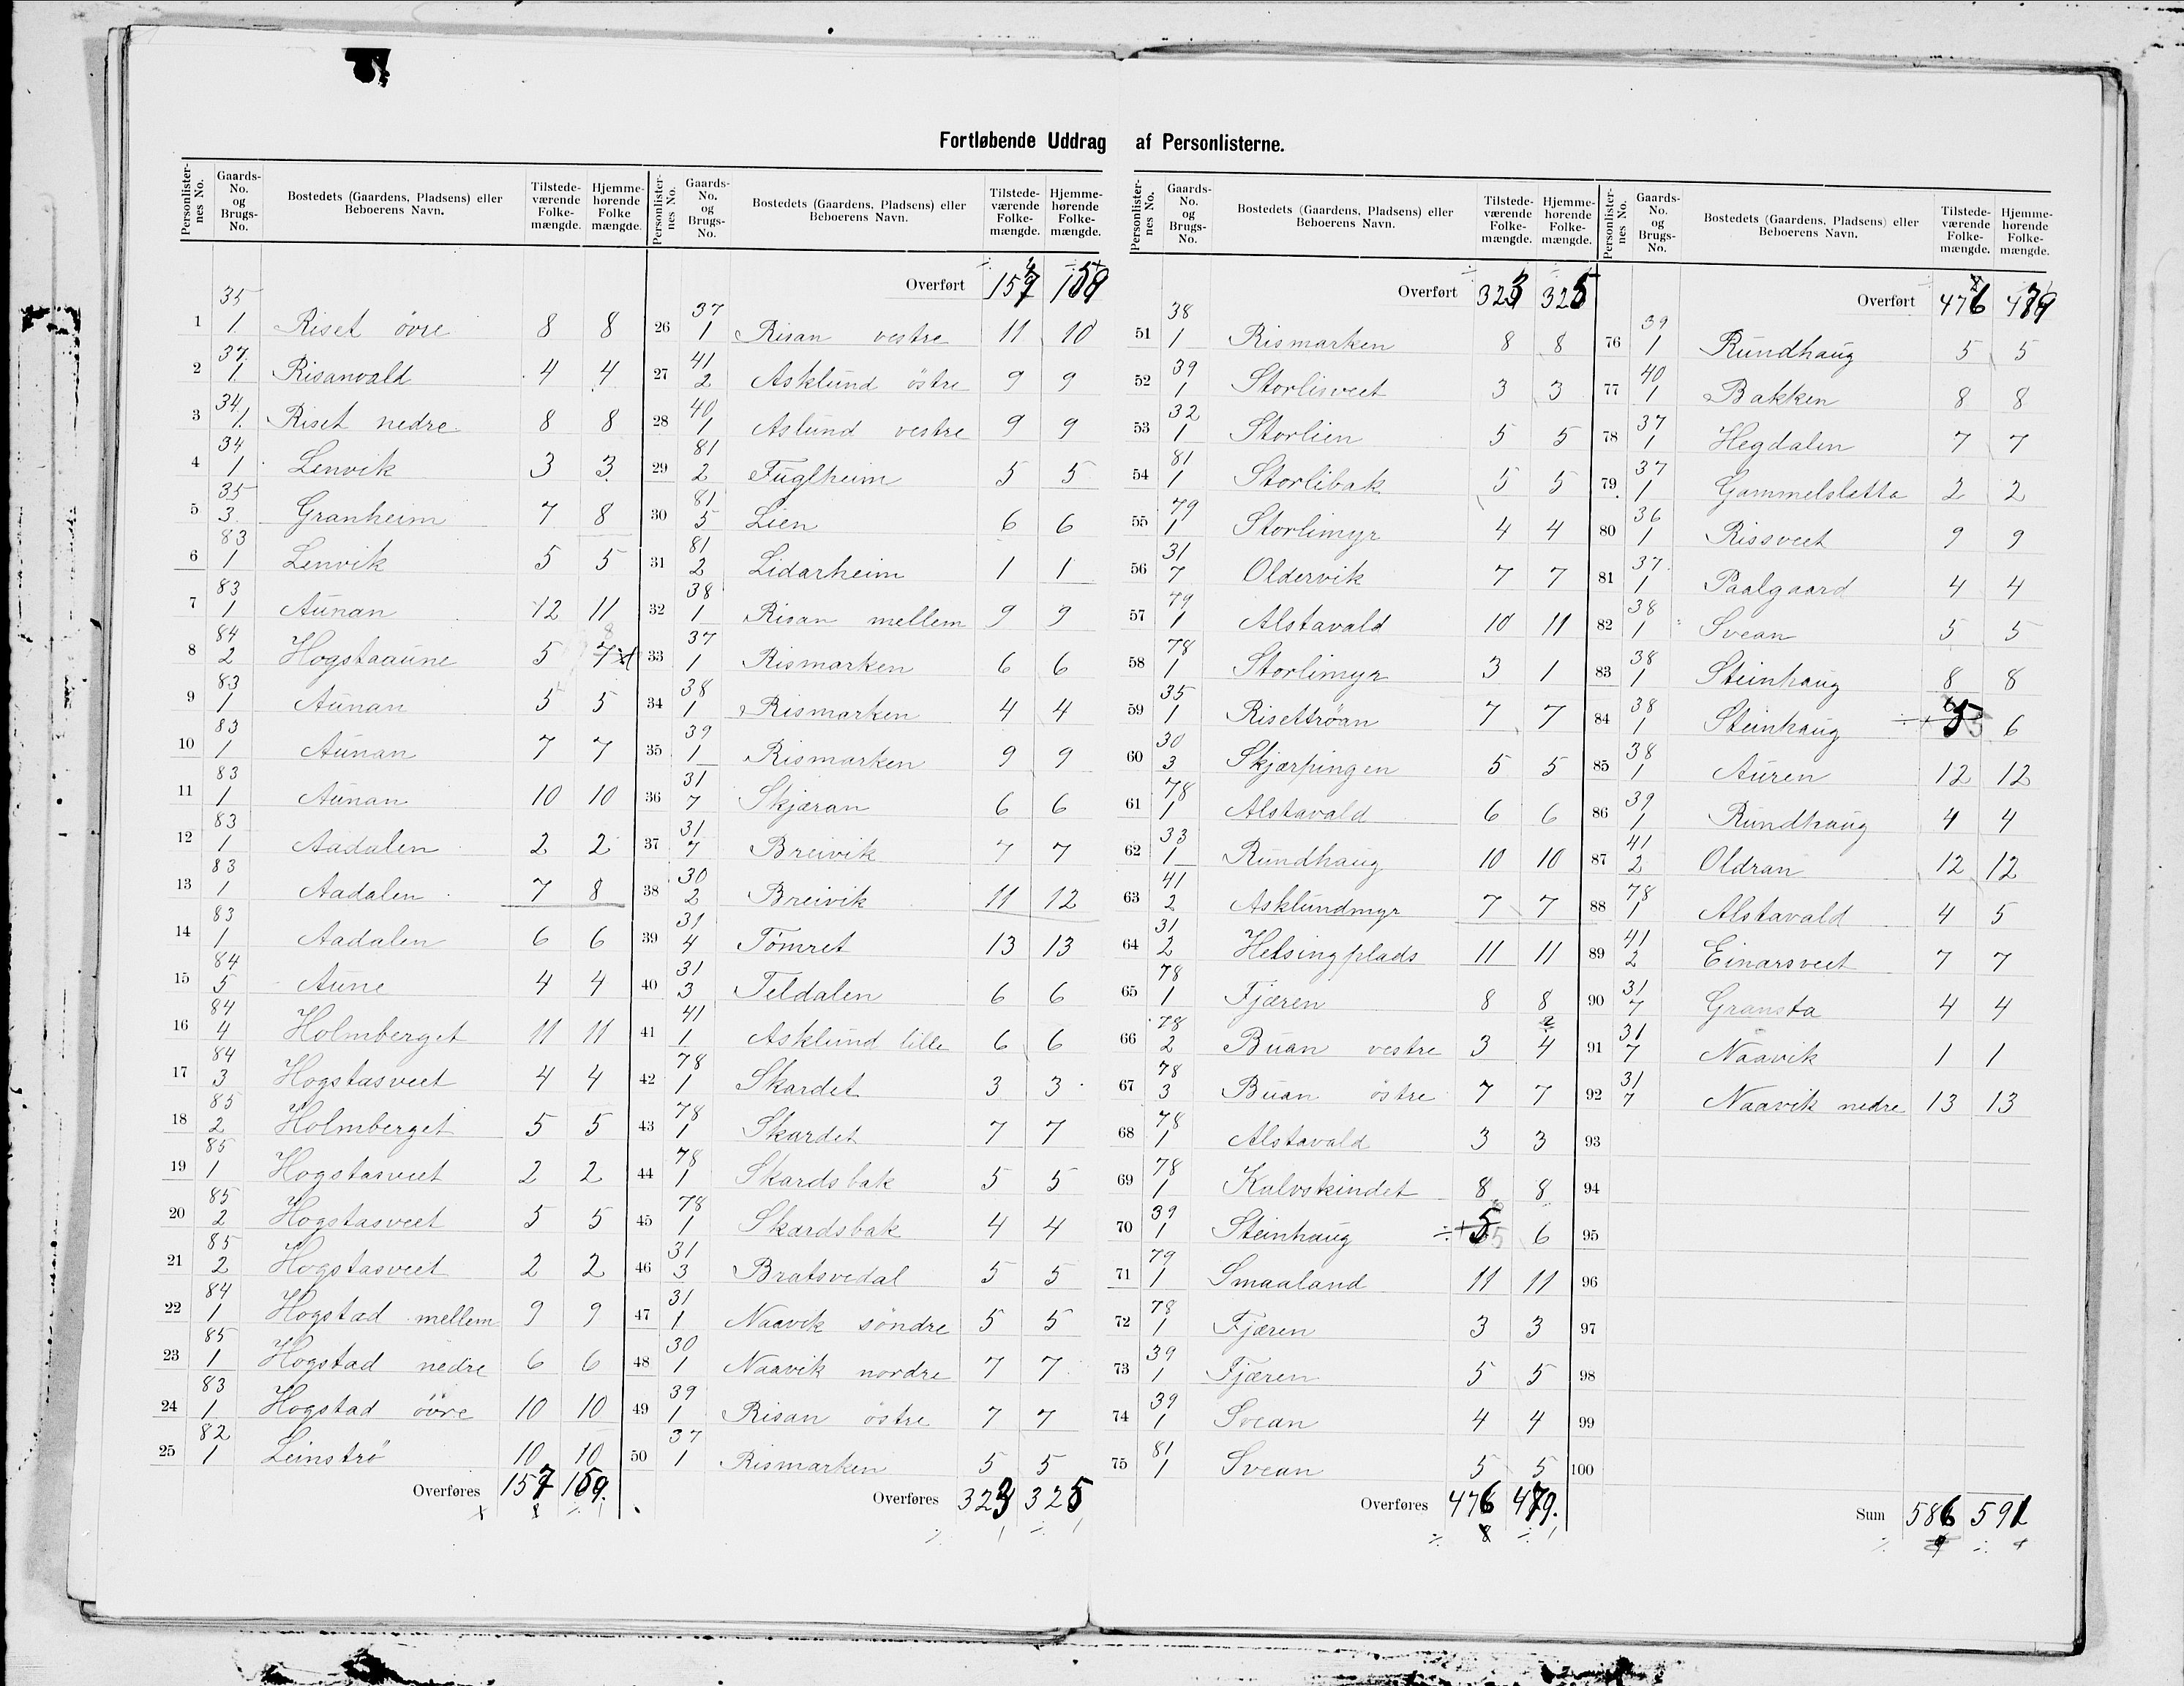 Fortløbende Uddrag af Personlisterne.
Personlister-nes No. Gaards-No. og Brugs-No. Bostedets (Gaardens, Pladsens) eller Beboerens Navn. Tilstede-værende Folke-mængde. Hjemme-hørende Folke mængde.
1 35 1 Riset övre 8 8
2 37 1 Risanvald 4 4
3 34 1 Riset nedre 8 8
4 34 1 Lenvik 3 3
5 35 3 Granheim 7 8
6 83 1 Lenvik 5 5
7 83 1 Aunan 12 11
8 84 2 Hogstaaune 5 7
9 83 1 Aunan 5 5
10 83 1 Aunan 7 7
11 83 1 Aunan 10 10
12 83 1 Aadalen 2 2
13 83 1 Aadalen 7 8
14 83 1 Aadalen 6 6
15 84 5 Aune 4 4
16 84 4 Holmberget 11 11
17 84 3 Hogstasveet 4 4
18 85 2 Holmberget 5 5
19 85 1 Hogstasveet 2 2
20 85 2 Hogstasveet 5 5
21 85 2 Hogstasveet 2 2
22 84 1 Hogstad mellem 9 9
23 85 1 Hogstad nedre 6 6
24 83 1 Hogstad övre 10 10
25 82 1 Leinströ 10 10
Overføres 157 159.
Personlister-nes No. Gaards-No. og Brugs-No. Bostedets (Gaardens, Pladsens) eller Beboerens Navn. Tilstede-værende Folke-mængde. Hjemme-hørende Folke-mængde.
Overført 157 159
26 37 1 Risan vestre 11 10
27 41 2 Asklund östre 9 9
28 40 1 Aslund vestre 9 9
29 81 2 Fuglheim 5 5
30 81 5 Lien 6 6
31 81 2 Lidarheim 1 1
32 38 1 Risan mellem 9 9
33 37 1 Rismarken 6 6
34 38 1 Rismarken 4 4
35 39 1 Rismarken 9 9
36 31 7 Skjæran 6 6
37 31 7 Breivik 7 7
38 30 2 Breivik 11 12
39 31 4 Tömret 13 13
40 31 3 Teldalen 6 6
41 41 1 Asklund lille 6 6
42 78 1 Skardet 3 3
43 78 1 Skardet 7 7
44 78 1 Skardsbak 5 5
45 78 1 Skardsbak 4 4
46 31 3 Bratsvedal 5 5
47 31 1 Naavik söndre 5 5
48 30 1 Naavik nordre 7 7
49 39 1 Risan östre 7 7
50 37 1 Rismarken 5 5
Overføres 323 325
Personlister-nes No. Gaards-No. og Brugs-No. Bostedets (Gaardens, Pladsens) eller Beboerens Navn. Tilstede-værende Folke-mængde. Hjemme-hørende Folke-mængde.
Overført 323 325
51 38 1 Rismarken 8 8
52 39 1 Storlisveet 3 3
53 32 1 Storlien 5 5
54 81 1 Storlibak 5 5
55 79 1 Storlimyr 4 4
56 31 7 Oldervik 7 7
57 79 1 Alstavald 10 11
58 78 1 Storlimyr 3 1
59 35 1 Risettröan 7 7
60 30 3 Skjærpingen 5 5
61 78 1 Alstavald 6 6
62 33 1 Rundhaug 10 10
63 41 2 Asklundmyr 7 7
64 31 2 Helsingplads 11 11
65 78 1 Fjæren 8 8
66 78 2 Buan vestre 3 4
67 78 3 Buan östre 7 7
68 78 1 Alstavald 3 3
69 78 1 Kalvskindet 8 8
70 39 1 Steinhaug 5 6
71 79 1 Smaaland 11 11
72 78 1 Fjæren 3 3
73 39 1 Fjæren 5 5
74 39 1 Svean 4 4
75 81 1 Svean 5 5
Overføres 476 479.
Personlister-nes No. Gaards-No. og Brugs-No. Bostedets (Gaardens, Pladsens) eller Beboerens Navn. Tilstede-værende Folke-mængde. Hjemme-hørende Folke-mængde.
Overført 476 479
76 39 1 Rundhaug 5 5
77 40 1 Bakken 8 8
78 37 1 Hegdalen 7 7
79 37 1 Gammelsletta 2 2
80 36 1 Rissveet 9 9
81 37 1 Paalgaard 4 4
82 38 1 Svean 5 5
83 38 1 Steinhaug 8 8
84 38 1 Steinhaug 5 6
85 38 1 Auren 12 12
86 39 1 Rundhaug 4 4
87 41 2 Oldran 12 12
88 78 1 Alstavald 4 5
89 41 2 Einarsveet 7 7
90 31 7 Gransta 4 4
91 31 7 Naavik 1 1
92 31 7 Naavik nedre 13 13
93
94
95
96
97
98
99
100
Sum 586 591